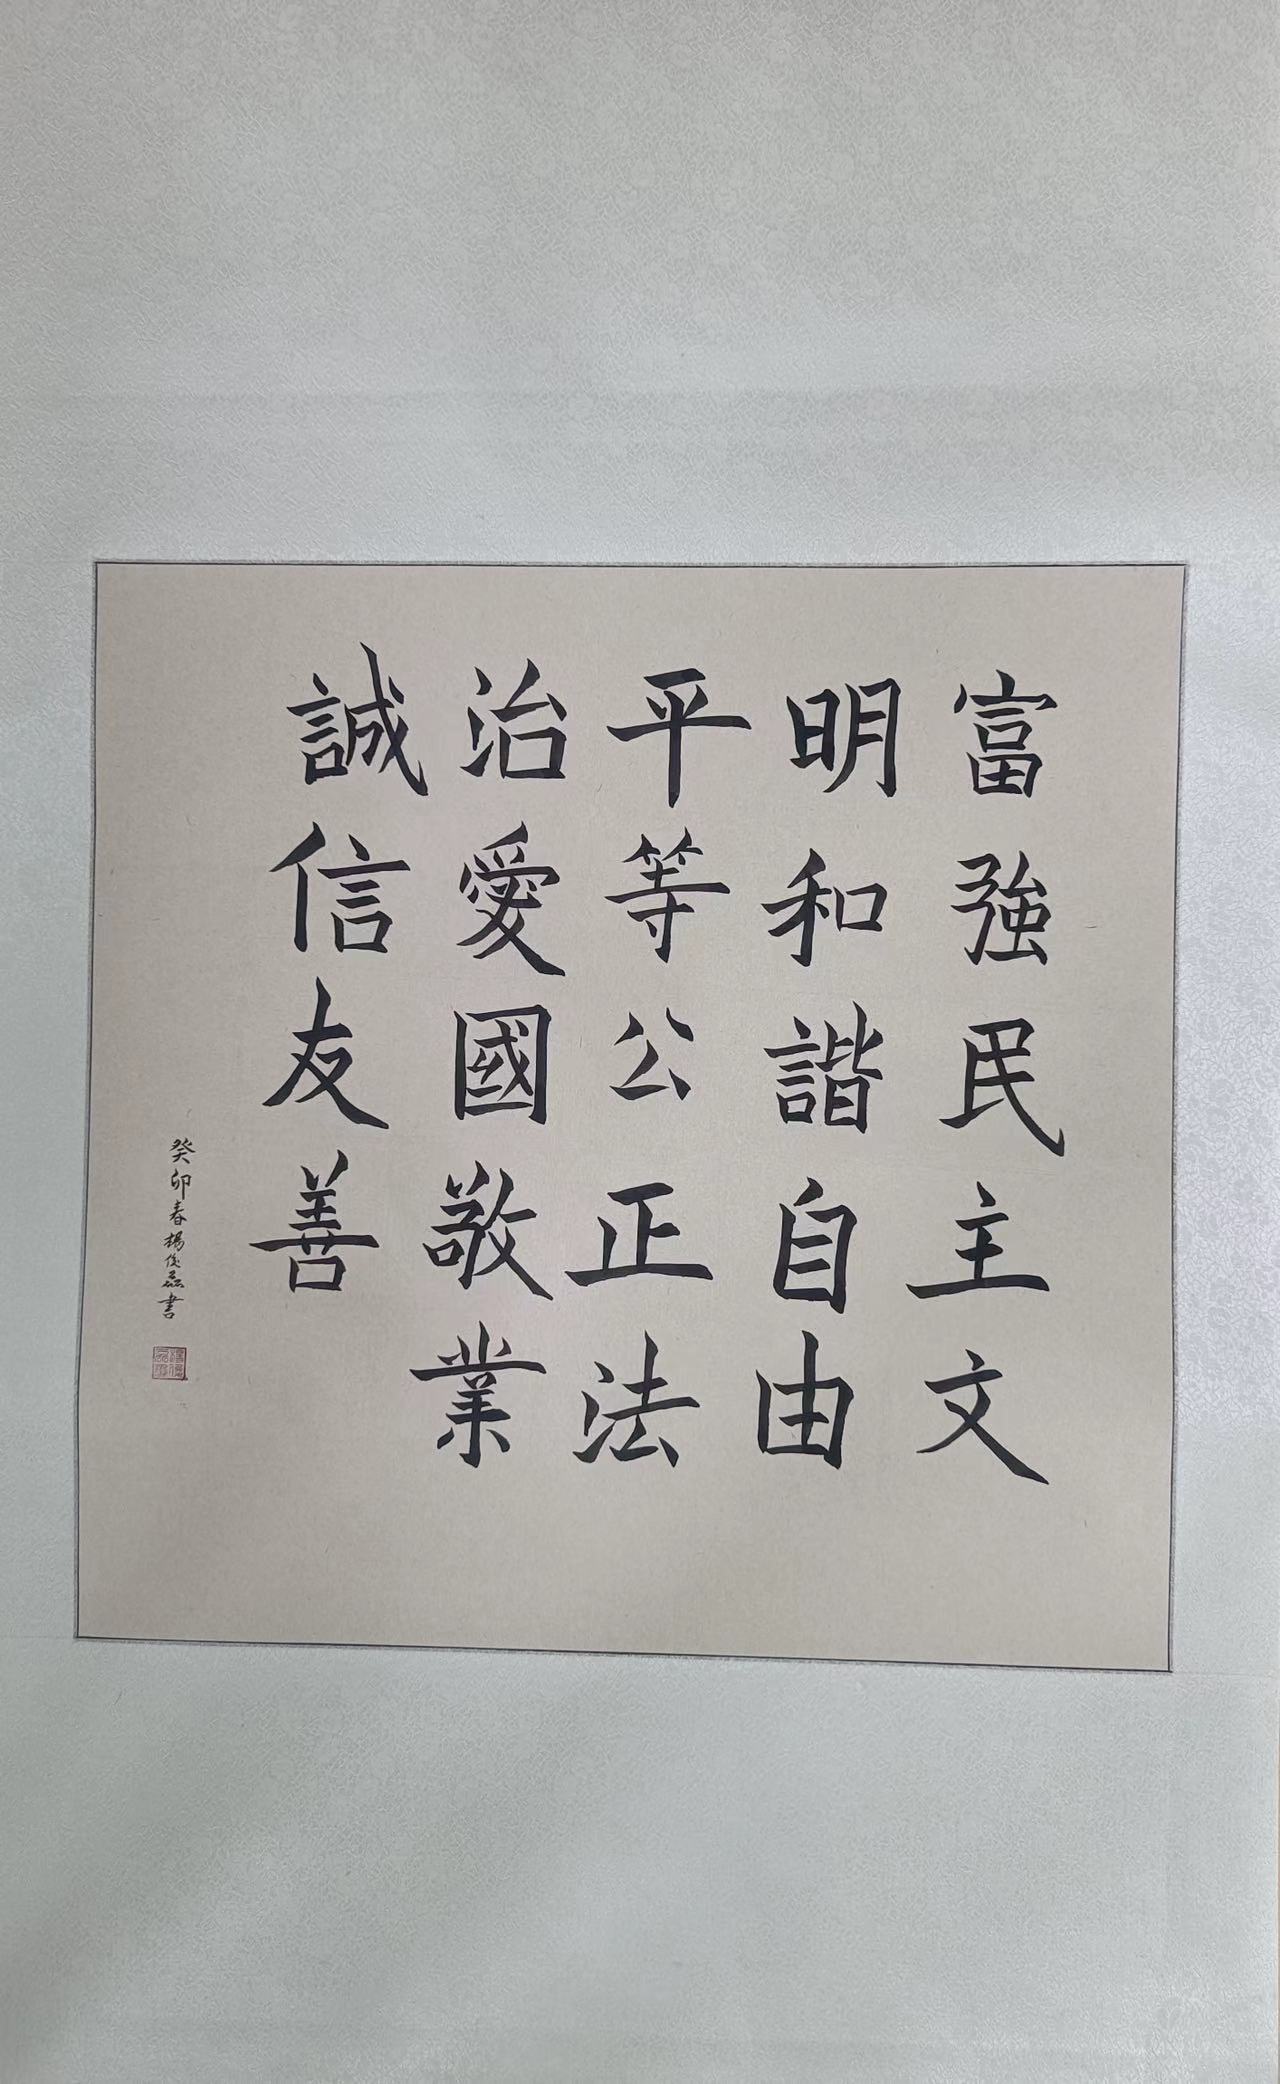 富強民主文
明和諧自由
平等公正法
治愛國敬業
誠信友善
癸卯春楊俊磊書